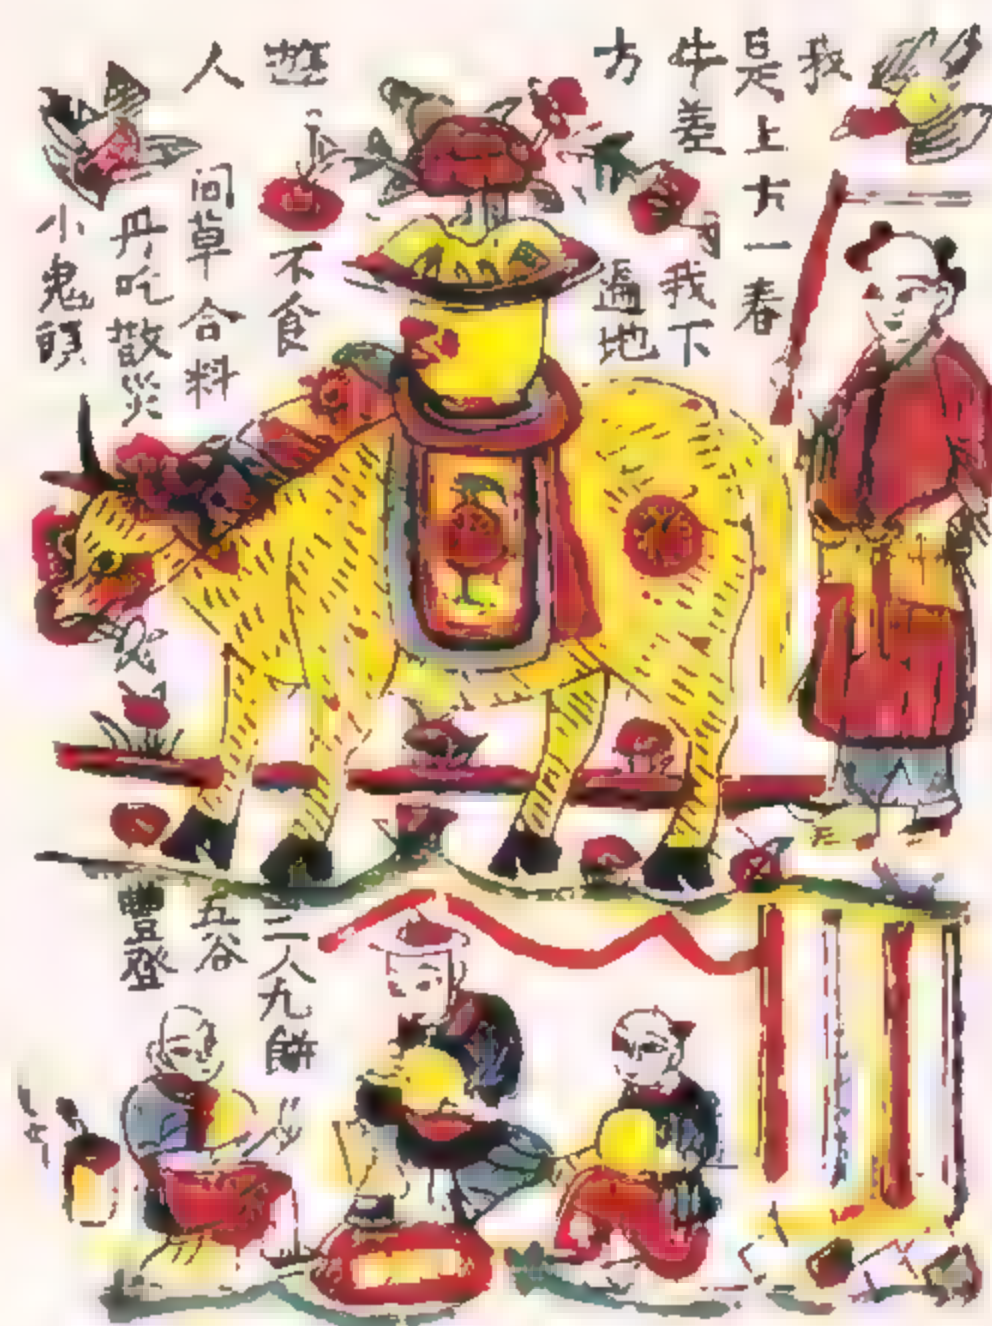 我
是上方一春
牛差我下
方遍地
遊不食
人間草合料
丹吃散災
小鬼頭
三人九餅
五谷
豐登